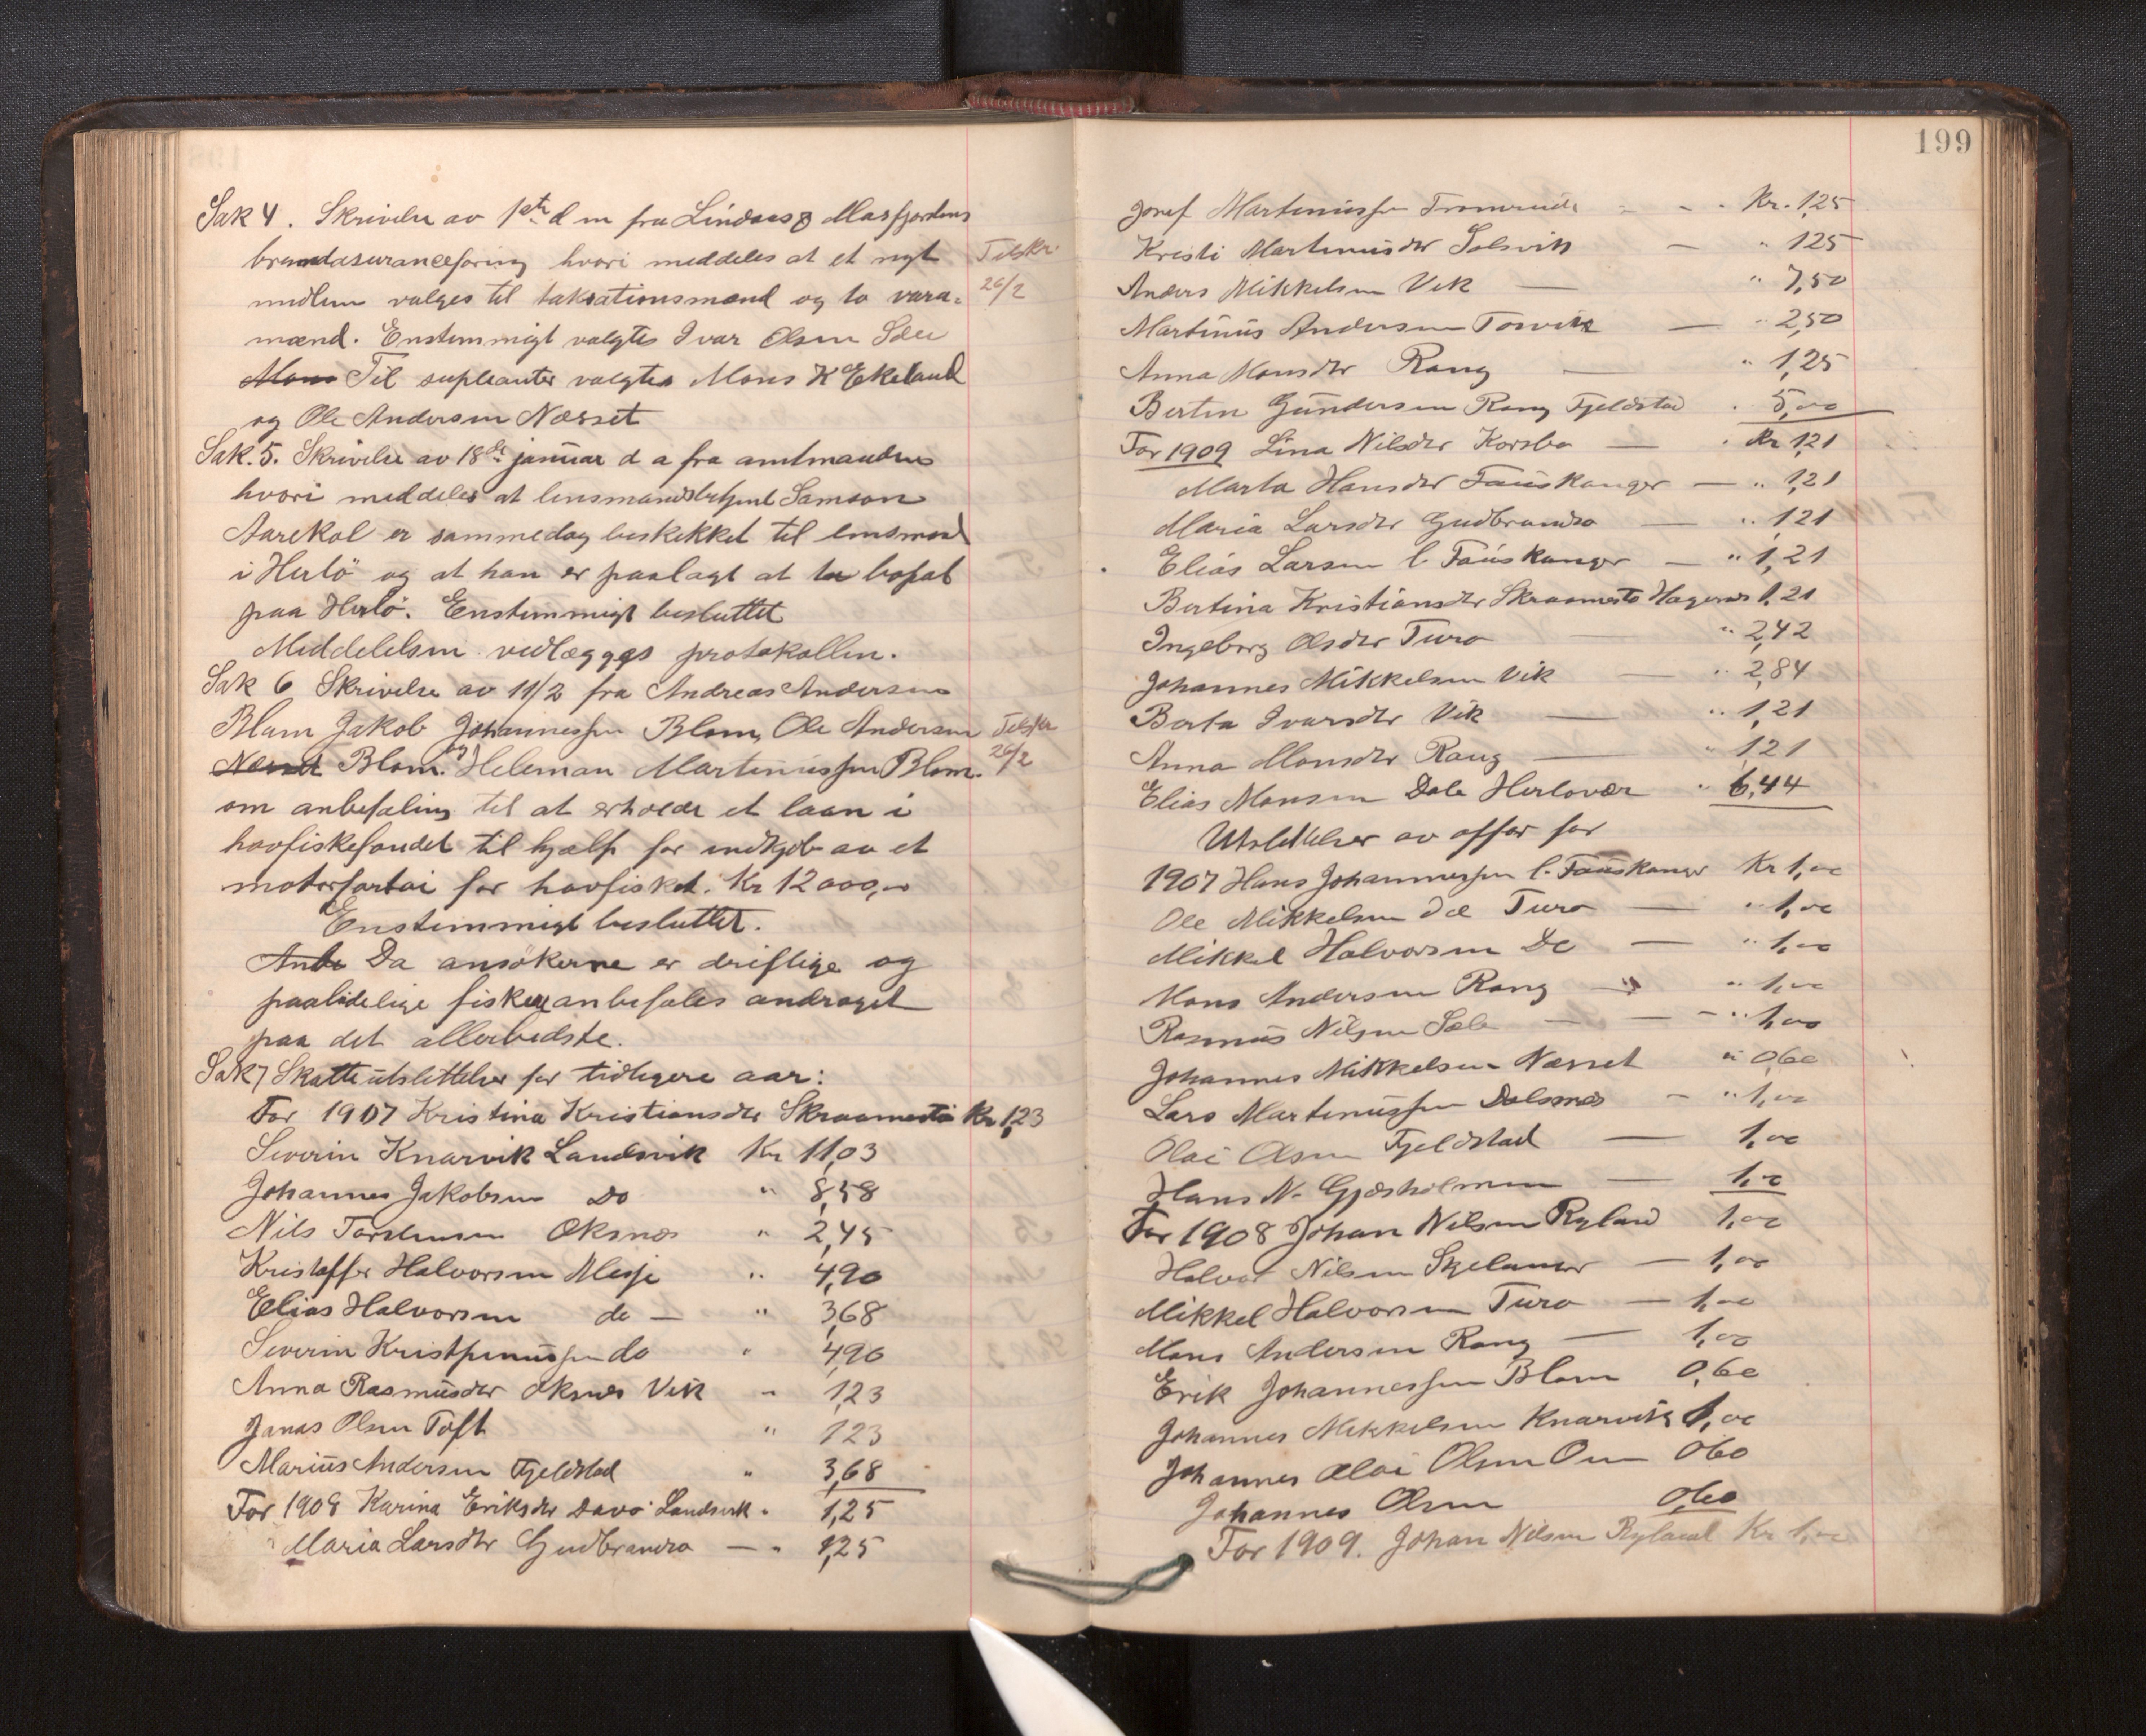 Sak 4. Skrivelse av 1ste d m fra Lindaas & Masfjordens
brandasuranceforing hvori meddeles at et nyt
medlem valges til taksationsmænd og to vara-
mænd. Enstemmigt valgtes Ivar Olsen Sæle
Mons Til supleanter valgtes Mons K Ekeland
og Ole Andersen Næsset
Tilskr.
26/2
Sak. 5. Skrivelse av 18de januar d a fra amtmanden
hvori meddeles at lensmandsbetjent Samson
Aarekol er sammedag beskikket til lensmand
i Herlö og at han er paalagt at ta bopæl
paa Herlö. Enstemmigt besluttet
Meddelelsen vedlægges protokollen.
Sak 6 Skrivelse av 11/2 fra Andreas Andersen
Blom Jakob Johannessen Blom, Ole Andersen
Næsset Blom. og Heleman Martinussen Blom.
Tilskr
26/2
om anbefaling til at erholde et laan i
havfiskefondet til hjælp for indkjöb av et
motorfartöi for havfisket. Kr 12000,00
Enstemmigt besluttet.
Anbe Da ansökerne er driftige og
paalidelige fiskere anbefales andraget
paa det allerbedste.
Sak 7 Skatteutslettelser for tidligere aar:
For 1907 Kristina Kristiansdtr Skraamestö Kr 1,23
Severin Knarvik Landsvik Kr 11,03
Johannes Jakobsen Do " 8,58
Nils Torstensen Oksnes " 2,45
Kristoffer Halvorsen Misje " 4,90
Elias Halvorsen do — " 3,68
Severin do " 4,90
Anna Rasmusdtr Oksnes Vik " 1,23
Jonas Olsen Toft " 1,23
Marius Andersen Fjeldstad " 3,68
For 1908 Karina Eriksdtr Davö Landsvik " 1,25
Maria Larsdtr Gudbrandsö — " 1,25
199
Josef Martinussen - - - Kr. 1,25
Kristi Martinusdtr Solsvik — " 1,25
Anders Mikkelsen Vik — " 7,50
Martinus Andersen Torvik — " 2,50
Anna Monsdtr Rong — " 1,25
Bertin Gundersen Rong Fjeldstad " 5,00
For 1909 Lina Nilsdtr Korsbø — " Kr 1,21
Marta Hansdtr Fauskanger — " 1,21
Maria Larsdtr Gudbrandsö — " 1,21
Elias Larsen l. Fauskanger — " 1,21
Bertina Kristiansdtr Skraamestö Hagenes 1,21
Ingeborg Olsdtr Turö — " 2,42
Johannes Mikkelsen Vik — " 2,84
Berta Ivarsdtr Vik — " 1,21
Anna Monsdtr Rong — " 1,21
Elias Monsen Dale Herlövær " 6,44
Utslettelser av offer for
1907 Hans Johannessen l. Fauskanger Kr 1,00
Ole Mikkelsen Turö — " 1,00
Mikkel Halvorsen Do — " 1,00
Mons Andersen Rong — " 1,00
Rasmus Nilsen Sæle — — " 1,00
Johannes Mikkelsen Næsset " 0,60
Lars Martinussen Dalsnes — " 1,00
Olai Olsen Fjeldstad — 1,00
Hans N. Gjøsholmen — 1,00
For 1908 Johan Nilsen Ryland 1,00
Halvor Nilsen Skjelanger — 1,00
Mikkel Halvorsen Turö — 1,00
Mons Andersen Rong — 1,00
Erik Johannessen Blom 0,60
Johannes Mikkelsen Knarvik 1,00
Johannes Olai Olsen Oen 0,60
Johannes Olsen 0,60
For 1909. Johan Nilsen Ryland Kr 1,00